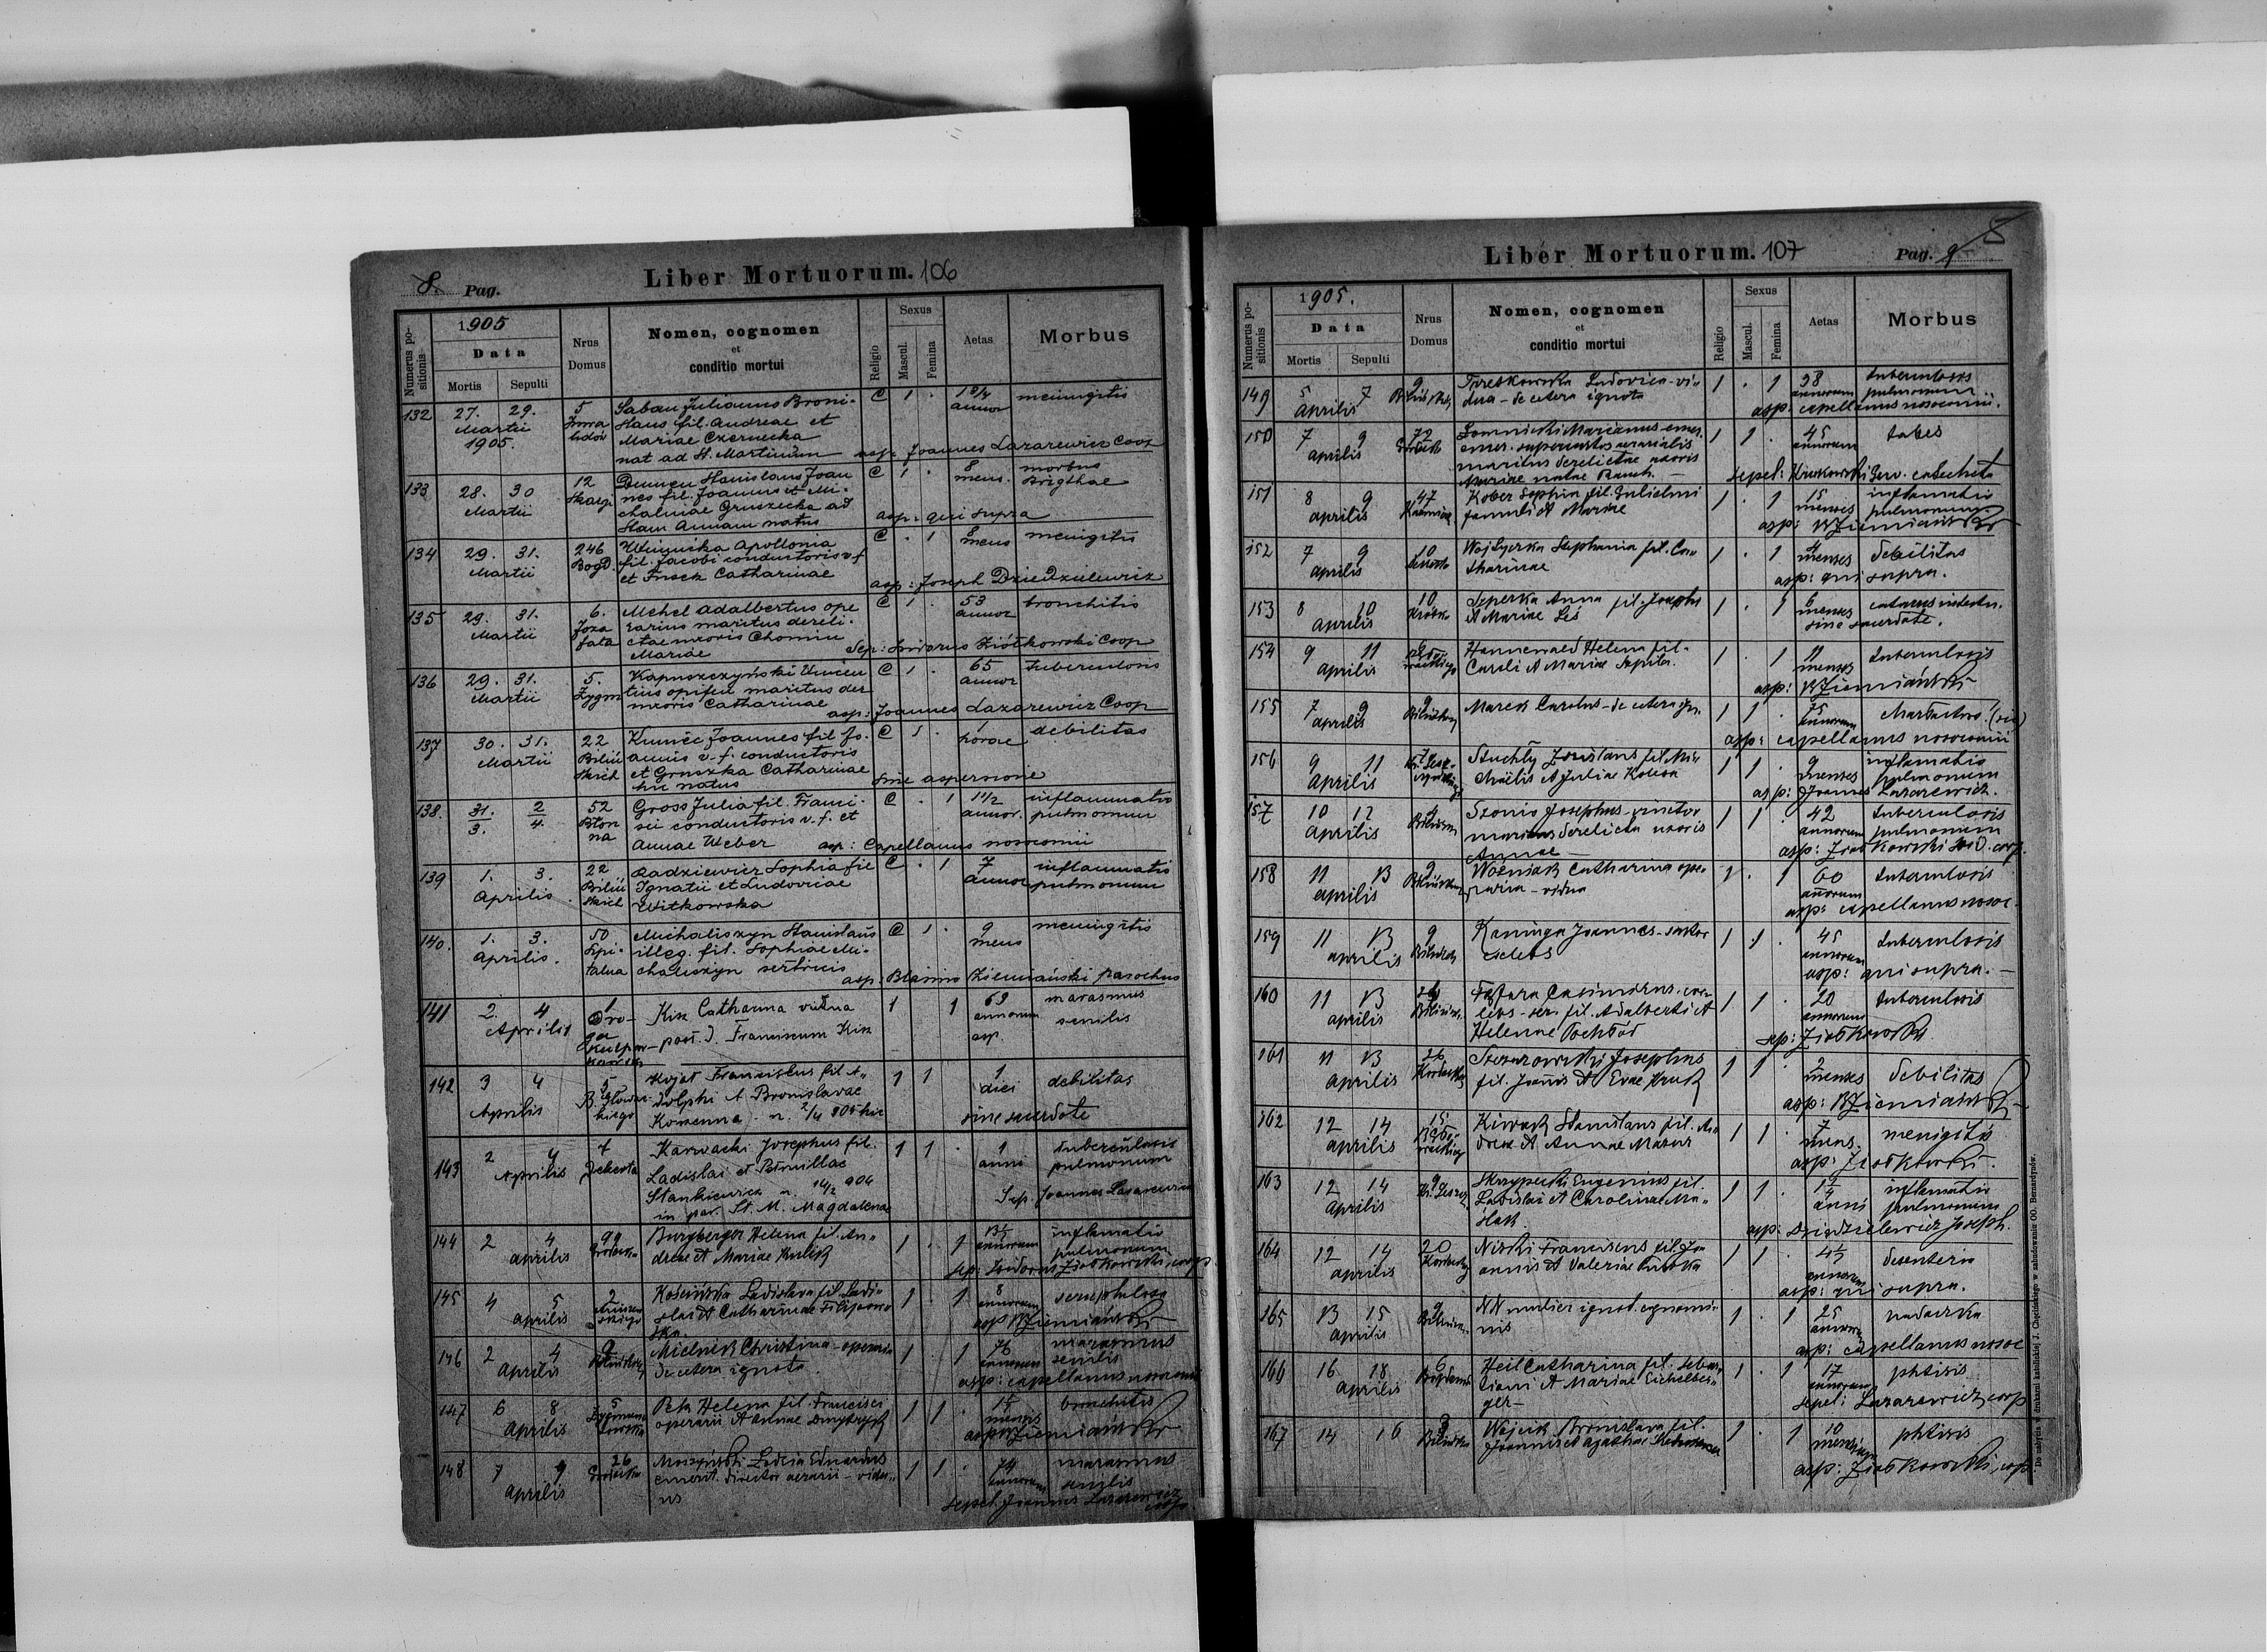 8. Pag.
Liber Mortuorum. 106
Numerus positionis
1905
Data
Mortis
Sepulti
Nrus Domus
Nomen, cognomen
et
conditio mortui
Religio
Sexus
Mascul.
Femina
Aetas
Morbus
132 27. 29. 5 Saban Julianus Broni- C 1 . 1 3/4 meningitis
Martii slaus fil. Andreae et annor
1905. Mariae Czernecka
nat ad St. Martinum asp: Joannes Lazarewicz Coop
133 28. 30 12 Stanislaus Joan C 1 . 8 morbus
Martii Skargi nes fil. Joannis et Mi- mens. Brigthae
chalinae Gruszecka ad
Stam Annam natus asp: qui supra
134 29. 31. 246 Winnicka Apollonia C . 1 8 menigitis
Martii Bogd. fil. Jacobi conductoris v. f mens
et Catharinae asp: Joseph Dziedzielewicz
135 29. 31. 6. Mehel Adalbertus ope C 1 . 53 bronchitis
Martii Joza rarius maritus dereli- annor
fata ctae uxoris Chomin
Mariae Sep: Isidorus Ziółkowski Coop
136 29. 31. 5. Kapuszczyński Vincen C 1 . 65 tuberculosis
Martii Zygm tius opifex maritus der annor
uxoris Catharinae asp: Joannes Lazarewicz Coop
137 30. 31. 22 Joannes fil Jo- C 1 . 1 debilitas
Martii Biliń annis v. f. conductoris horae
skich et Gruszka Catharinae
hic natus sine aspersione
138. 31. 2 52 Gross Julia fil. Franci- C . 1 1 1/2 inflammatio
3. 4. Błon sci conductoris v. f. et annor. pulmonum
na Annae Weber asp: Capellanus nosocomii
139 1. 3. 22 Radziewicz Sophia fil C . 1 7 inflammatio
Aprilis. Biliń Ignatii et Ludovicae annor pulmonum
skich Witkowska
140. 1. 3. 50 Michaliszyn Stanislaus C 1 . 9 meningitis
Aprilis. Szpi- illeg. fil. Sophiae Mi- mens
talna chaliszyn asp: Blasius Ziemiański parochus
141 2. 4 1 Kisz Catharina vidua 1 1 69 marasmus
Aprilis Dro- post. d. Franciscum Kisz annorum senilis
ga asp.
Kulpar-
kowska
142 3 4 5 Kojat Franciscus fil A- 1 1 1 debilitas
Aprilis B. Głowac- dolphi et Bronislavae diei
kiego n. 2/4 905 hic sine sacerdote
143 2 4 7 Karwacki Josephus fil. 1 1 . 1 tuberculosis
Aprilis Dekerta Ladislai et Petruillae anni pulmonum
Stankiewicz n. 14/2 904 Sep. Joannes Lazarewicz
in par. St. M. Magdalenae
144 2 4 99 Burgberger Helena fil. An- 1 . 1 inflamatio
aprilis Gródecka dreae et Mariae Kulik annorum pulmonum
sep: Isidorus Ziołkowski, coop
145 4 5 2 Kościńska Ladislava fil. Ladi- 1 . 1 8 scrophulosa
aprilis slai et Catharinae Filipow- annorum
ska asp: B Ziemiański
146 2 4 9 Mielnik Christina - operaria 1 . 1 76 marasmus
aprilis Bilińskich de cetera ignota annorum senilis
asp: capellanus nosocomii
147 6 8 5 Pek Helena fil. Francisci 1 1 . bronchitis
aprilis Zygmun- operarii et Annae mensis
towska asp: B Ziemiański
148 7 9 26 Eduardus 1 1 . 74 marasmus
aprilis Gródecka emerit. director aerarii - vidu- annorum senilis
us sepel. Joannes Lazarewicz
coop.
Liber Mortuorum. 107
Pag. 9
Numerus positionis
1905.
Data
Mortis
Sepulti
Nrus Domus
Nomen, cognomen
et
conditio mortui
Religio
Sexus
Mascul.
Femina
Aetas
Morbus
149 5 7 9 Ludovica - vi- 1 . 1 38 tuberculosis
aprilis Bilińskich dua - de cetera ignota annorum pulmonum
asp: capellanus nosocomii.
150 7 9 70 Łomnicki Marianus emer. 1 1 . 45 tabes
aprilis Gródecka annorum
maritus derelictae uxoris
Mariae natae sepel: Kruszkowski Gew. catecheta
151 8 9 47 Kober Sophia fil. Gulielmi 1 . 1 15 inflamatio
aprilis famuli et Mariae mensis pulmonum
asp: B Ziemiański
152 7 9 10 Stephania fil. Ca- 1 . 1 4 debilitas
aprilis tharinae menses
asp: qui supra.
153 8 10 10 Seperka Anna fil. Josephi 1 . 1 6
aprilis et Mariae Leś menses
sine sacerdote.
154 9 11 Hannewald Helena fil. 1 . 1 11 tuberculosis
aprilis Caroli et Mariae menses
asp: B Ziemiański
155 7 9 9 Marek Carolus - de cetera ign. 1 1 . 75 (sic)
aprilis Bilińskich annorum
asp: capellanus nosocomii
156 9 11 7 Stuchły fil. Mi- 1 1 . 9 inflamatio
aprilis chaelis et Juliae menses pulmonum
asp: Joannes Lazarewicz.
157 10 12 9 Szonio Josephus 1 1 . 42 tuberculosis
aprilis Bilińskich maritus derelictae uxoris annorum pulmonum
Annae asp: Ziołkowski Isid. coop.
158 11 13 9 Woźniak Catharina ope- 1 . 1 60 tuberculosis
aprilis Bilińskich raria - vidua annorum
asp: capellanus nosoc.
159 11 13 9 Kaninga Joannes - 1 1 . 45 tuberculosis
aprilis Bilińskich caelebs annorum
asp: qui supra.
160 11 13 Casimirus - cae- 1 1 . 20 tuberculosis
aprilis lebs - fil. Adalberti et annorum
Helenae sep: Ziołkowski
161 11 13 26 Szczurowski Josephus 1 1 . 2 debilitas
aprilis fil. Joannis et Evae Kruk menses
asp: B Ziemiański
162 12 14 15 Kiwak Stanislaus fil. An- 1 1 . 7 menigitis
aprilis dreae et Annae Mazur mens.
asp: Ziołkowski.
163 12 14 9 Skrzypecki Eugenius fil. 1 1 . inflamatio
aprilis Ladislai et Carolinae Ma- anni pulmonum
ślak. asp: Dziedzielewicz Joseph.
164 12 14 20 Nitki Franciscus fil. Jo- 1 1 . desenteria
aprilis annis et Valeriae annorum
asp: qui supra.
165 13 15 9 NN mulier ignot. cognomi- 1 . 1 25
aprilis nis annorum
asp: capellanus nosoc
166 16 18 6 Heil Catharina fil. Sebas- 1 . 1 17 phtisis
aprilis tiani et Mariae Eichelber- annorum
ger - sepel: Lazarewicz, coop
167 14 16 Wojcik Bronislava fil. 1 . 1 10 phtisis
Joannis et Agathae menses
asp: Ziołkowski, coop.
Do nabycia w drukarni katolickiej J. Chęcińskiego w zabudowaniu OO. Bernardynów.